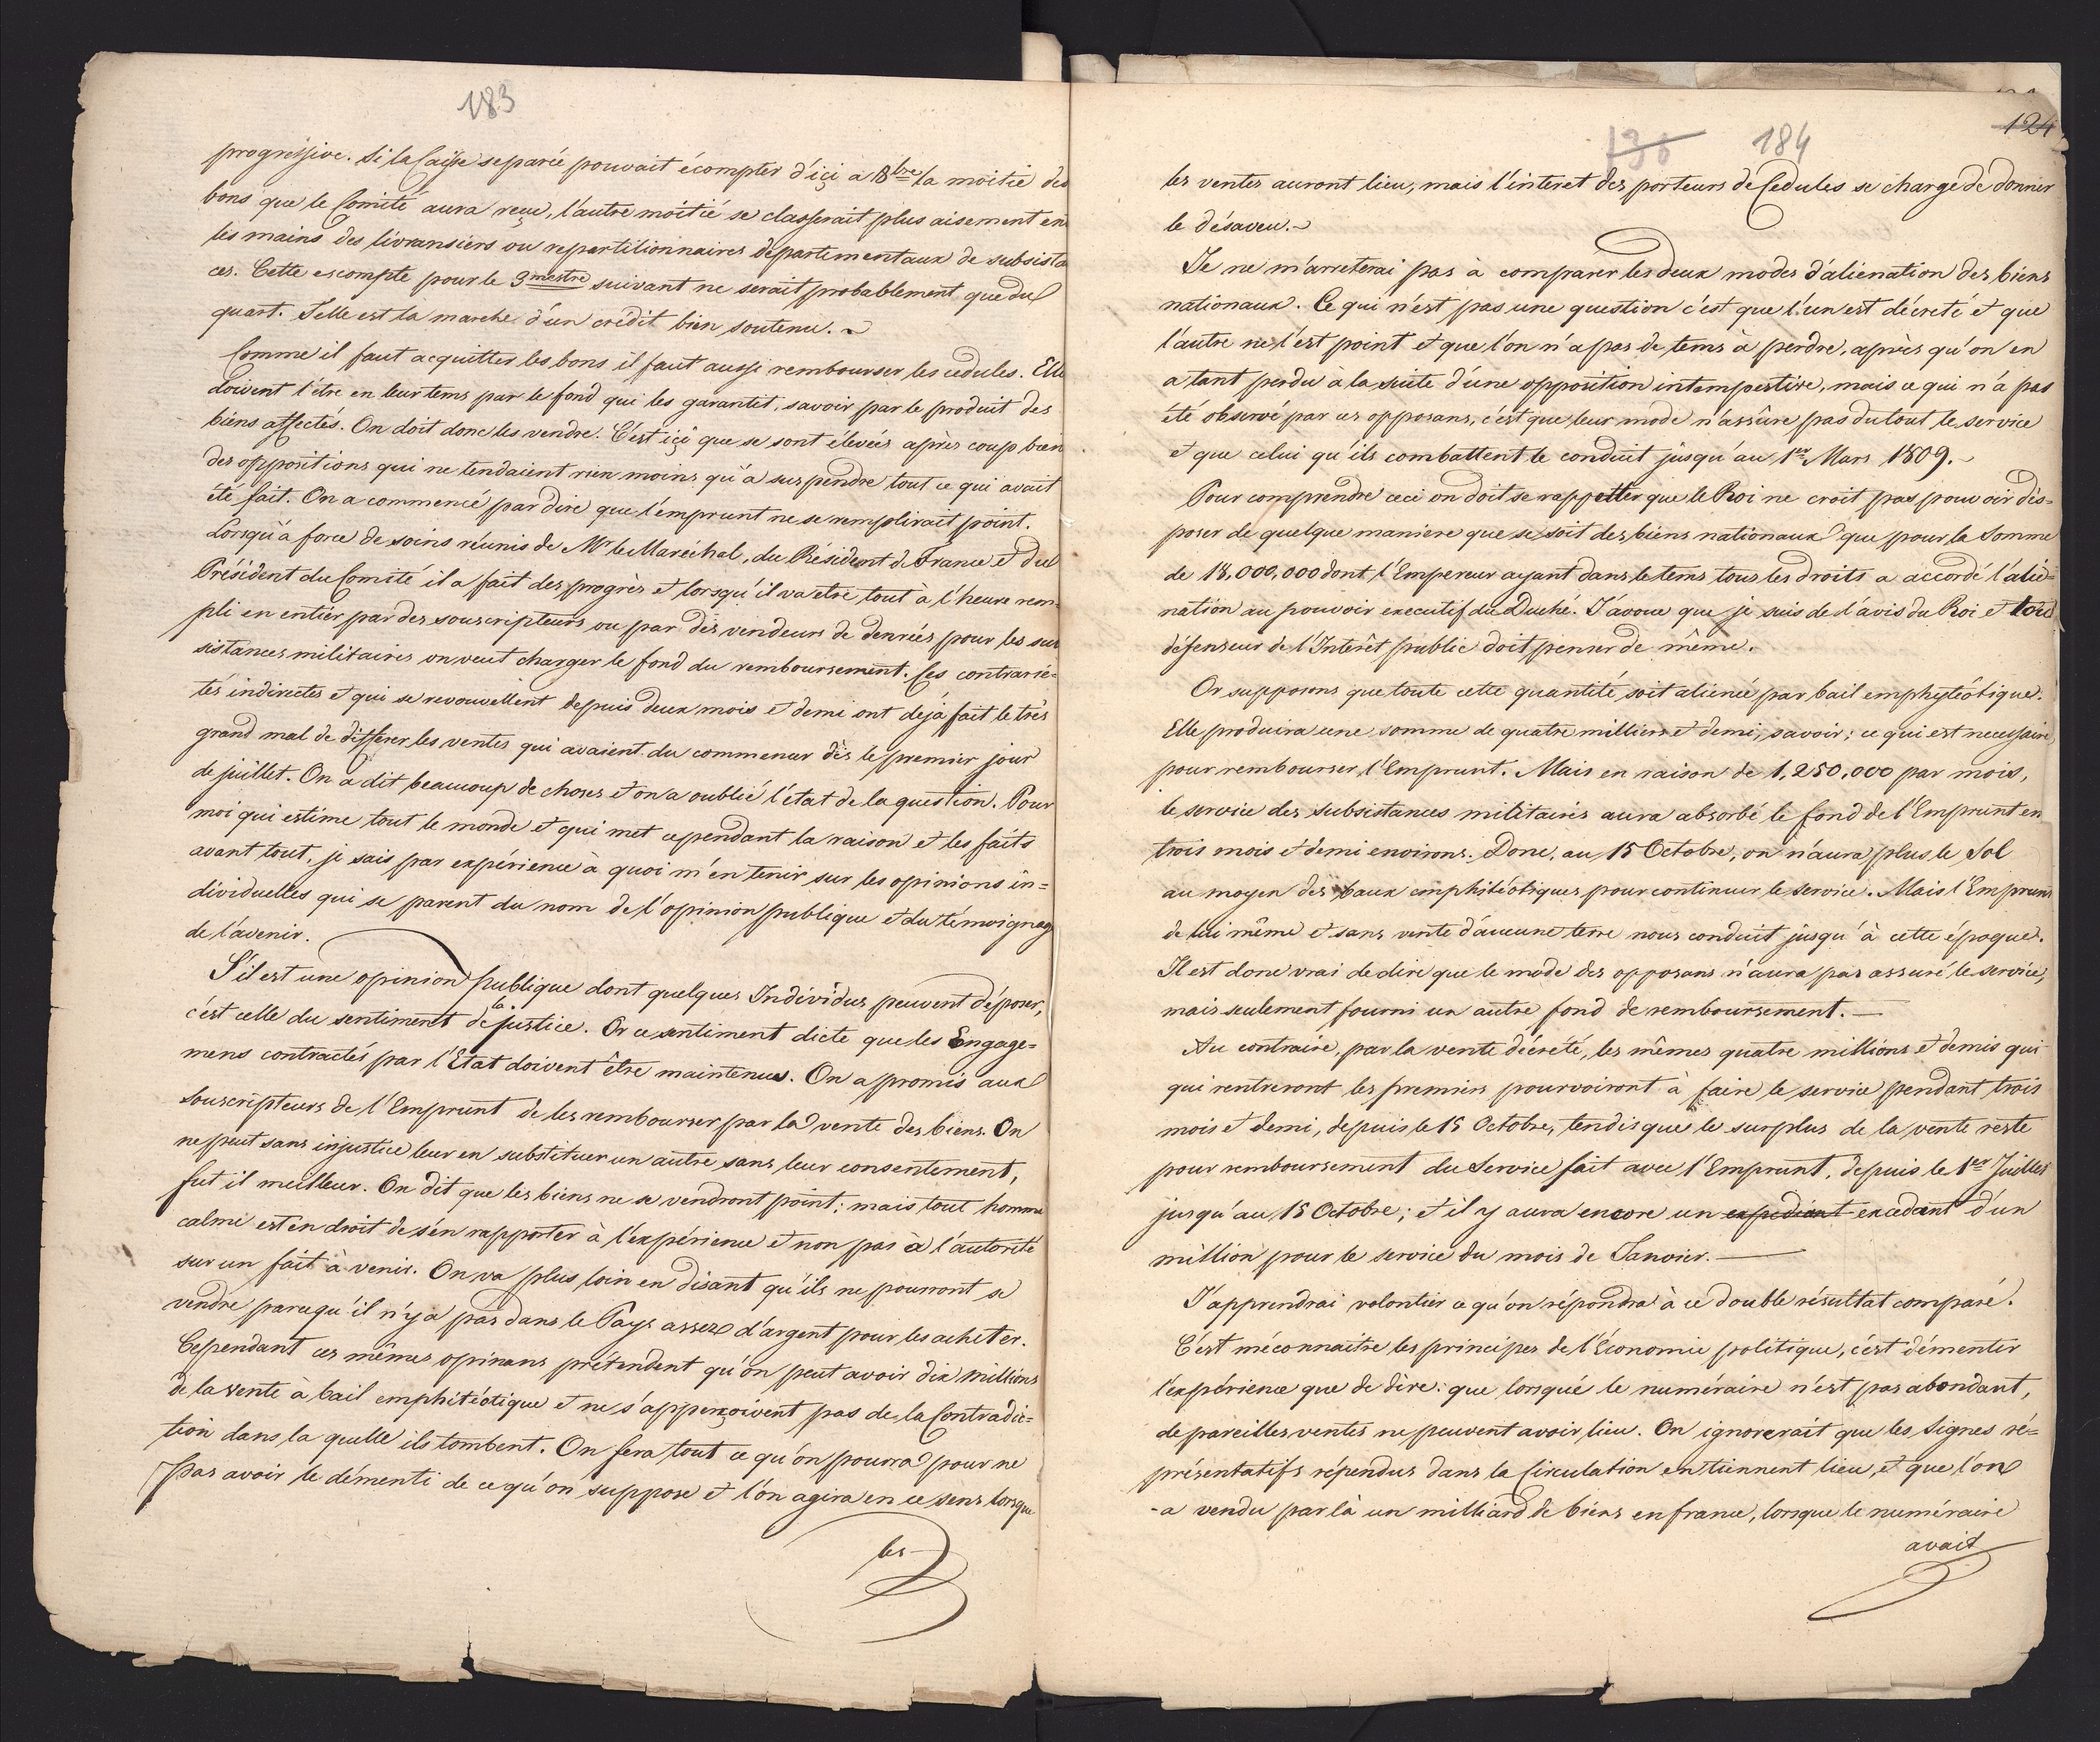 183
progressive. Si la Caisse separée pouvait écompter d'içi a 8bre la moitié des
bons que le Comité aura reçu, l'autre moitié se classerait plus aisement en
les mains des livransiers ou repartitionnaires départimentaux de subsistan
ces. Cette escompte pour le 3mestre suivant ne serait probablement que du
quart. Telle est la marche d'un crédit bien soutenu.
Comme il faut acquitter les bons il faut aussi rembourser les cedules. Elle
doivent l'être en leur tems par le fond qui les garantit, savoir par le produit des
biens affectés. On doit donc les vendre. C'est içi que se sont élevées après coup bien
des oppositions qui ne tendaient rien moins qu'à suspendre tout ce qui avait
été fait. On a commencé par dire que l'emprunt ne se remplirait point.
Lorsqu'à force de soins réunis de Mr le Maréchal, du Résident de France et du
Président du Comité il a fait des progrès et lorsqu'il va etre tout à l'heure rem-
pli en entier par des souscripteurs ou par des vendeurs de denrées pour les sub
sistances militaires on veut charger le fond du remboursement. Ces contrarié-
tés indirectes et qui se revouvellent depuis deux mois et demi ont déjà fait le très
grand mal de différer les ventes qui avaient du commencer dès le premier jour
de juillet. On a dit beaucoup de choses et on a oublié l'état de la question. Pour
moi qui estime tout le monde et qui met cependant la raison et les faits
avant tout, je sais par expérience à quoi m'en tenir sur les opinions in=
dividuelles qui se parent du nom de l'opinion publique et du témoignag
de l'avenir.
S'il est une opinion publique dont quelques Individus peuvent déposer,
c'est celle du sentiment de la justice. Or ce sentiment dicte que les Engage=
mens contractés par l'Etat doivent être maintenus. On a promis aux
Souscripteurs de l'Emprunt de les rembourser par la vente des biens. On
ne peut sans injustice leur en substituer un autre sans leur consentement,
fut il meilleur. On dit que les biens ne se vendront point; mais tout homme
calme est en droit de s'en rapporter à l'expérience et non pas à l'autorité
sur un fait à venir. On va plus loin en disant qu'ils ne pourront se
vendre parcequ'il n'y a pas dans le Pays assez d'argent pour les acheter.
Cependant ces mêmes opinans prétendent qu'on peut avoir dix millions
de la vente à bail emphitéotique et ne s'apperçoivent pas de la Contradic=
tion dans la quelle ils tombent. On fera tout ce qu'on pourra pour ne
pas avoir le démenti de ce qu'on suppose et l'on agira en ce sens lorsque
les
124
130 184
les ventes auront lieu, mais l'interet des porteurs de Cedules se charge de donner
le désaveu.
Je ne m'arreterai pas à comparer les deux modes d'alienation des biens
nationaux. Ce qui n'est pas une question c'est que l'un est décreté et que
l'autre ne l'est point et que l'on n'a pas de tems à perdre, après qu'on en
a tant perdu à la suite d'une opposition intempestive, mais ce qui n'a pas
été observé par ces opposans, c'est que leur mode n'assûre pas du tout le service
et que celui qu'ils combattent le conduit jusqu'au 1er Mars 1809.
Pour comprendre ceci on doit se rappeller que le Roi ne croit pas pouvoir dis=
poser de quelque maniere que se soit des biens nationaux que pour la Somme
de 18,000,000 dont l'Empereur ayant dans le tems tous les droits a accordé l'alié=
nation au pouvoir executif du Duché. J'avoue que je suis de l'avis du Roi et tout
défenseur de l'Interêt public doit penser de même.
Or supposons que toute cette quantité soit alienée par bail emphytéotique.
Elle produira une somme de quatre millions et demi, savoir; ce qui est necessaire
pour rembourser l'Emprunt. Mais en raison de 1,250,000 par mois,
le service des subsistances militaires aura absorbé le fond de l'Emprunt en
trois mois et demi environs. Donc, au 15 Octobre, on n'aura plus le Sol
au moyen des baux emphitéotiques pour continuer le service. Mais l'Emprunt
de lui même et sans vente d'aucune terre nous conduit jusqu'à cette époque.
Il est donc vrai de dire que le mode des opposans n'aura pas assuré le service,
mais seulement fourni un autre fond de remboursement.
Au contraire, par la vente décreté, les mêmes quatre millions et demis qui
qui rentreront les premiers pourvoiront à faire le service pendant trois
mois et demi, depuis le 15 Octobre, tendis que le surplus de la vente reste
pour remboursement du Service fait avec l'Emprunt, depuis le 1er Juillet
jusqu'au 15 Octobre; et il y aura encore un expediant excedent d'un
million pour le service du mois de Janvier.
J'apprendrai volontier ce qu'on répondra à ce double résultat comparé.
C'est méconnaitre les principes de l'Économie politique, c'est démentir
l'expérience que de dire: que lorsque le numéraire n'est pas abondant,
de pareilles ventes ne peuvent avoir lieu. On ignorerait que les Signes ré=
présentatifs répendus dans la Circulation en tiennent lieu, et que l'on
-a vendu par là un milliard de biens en france, lorsque le numéraire
avait